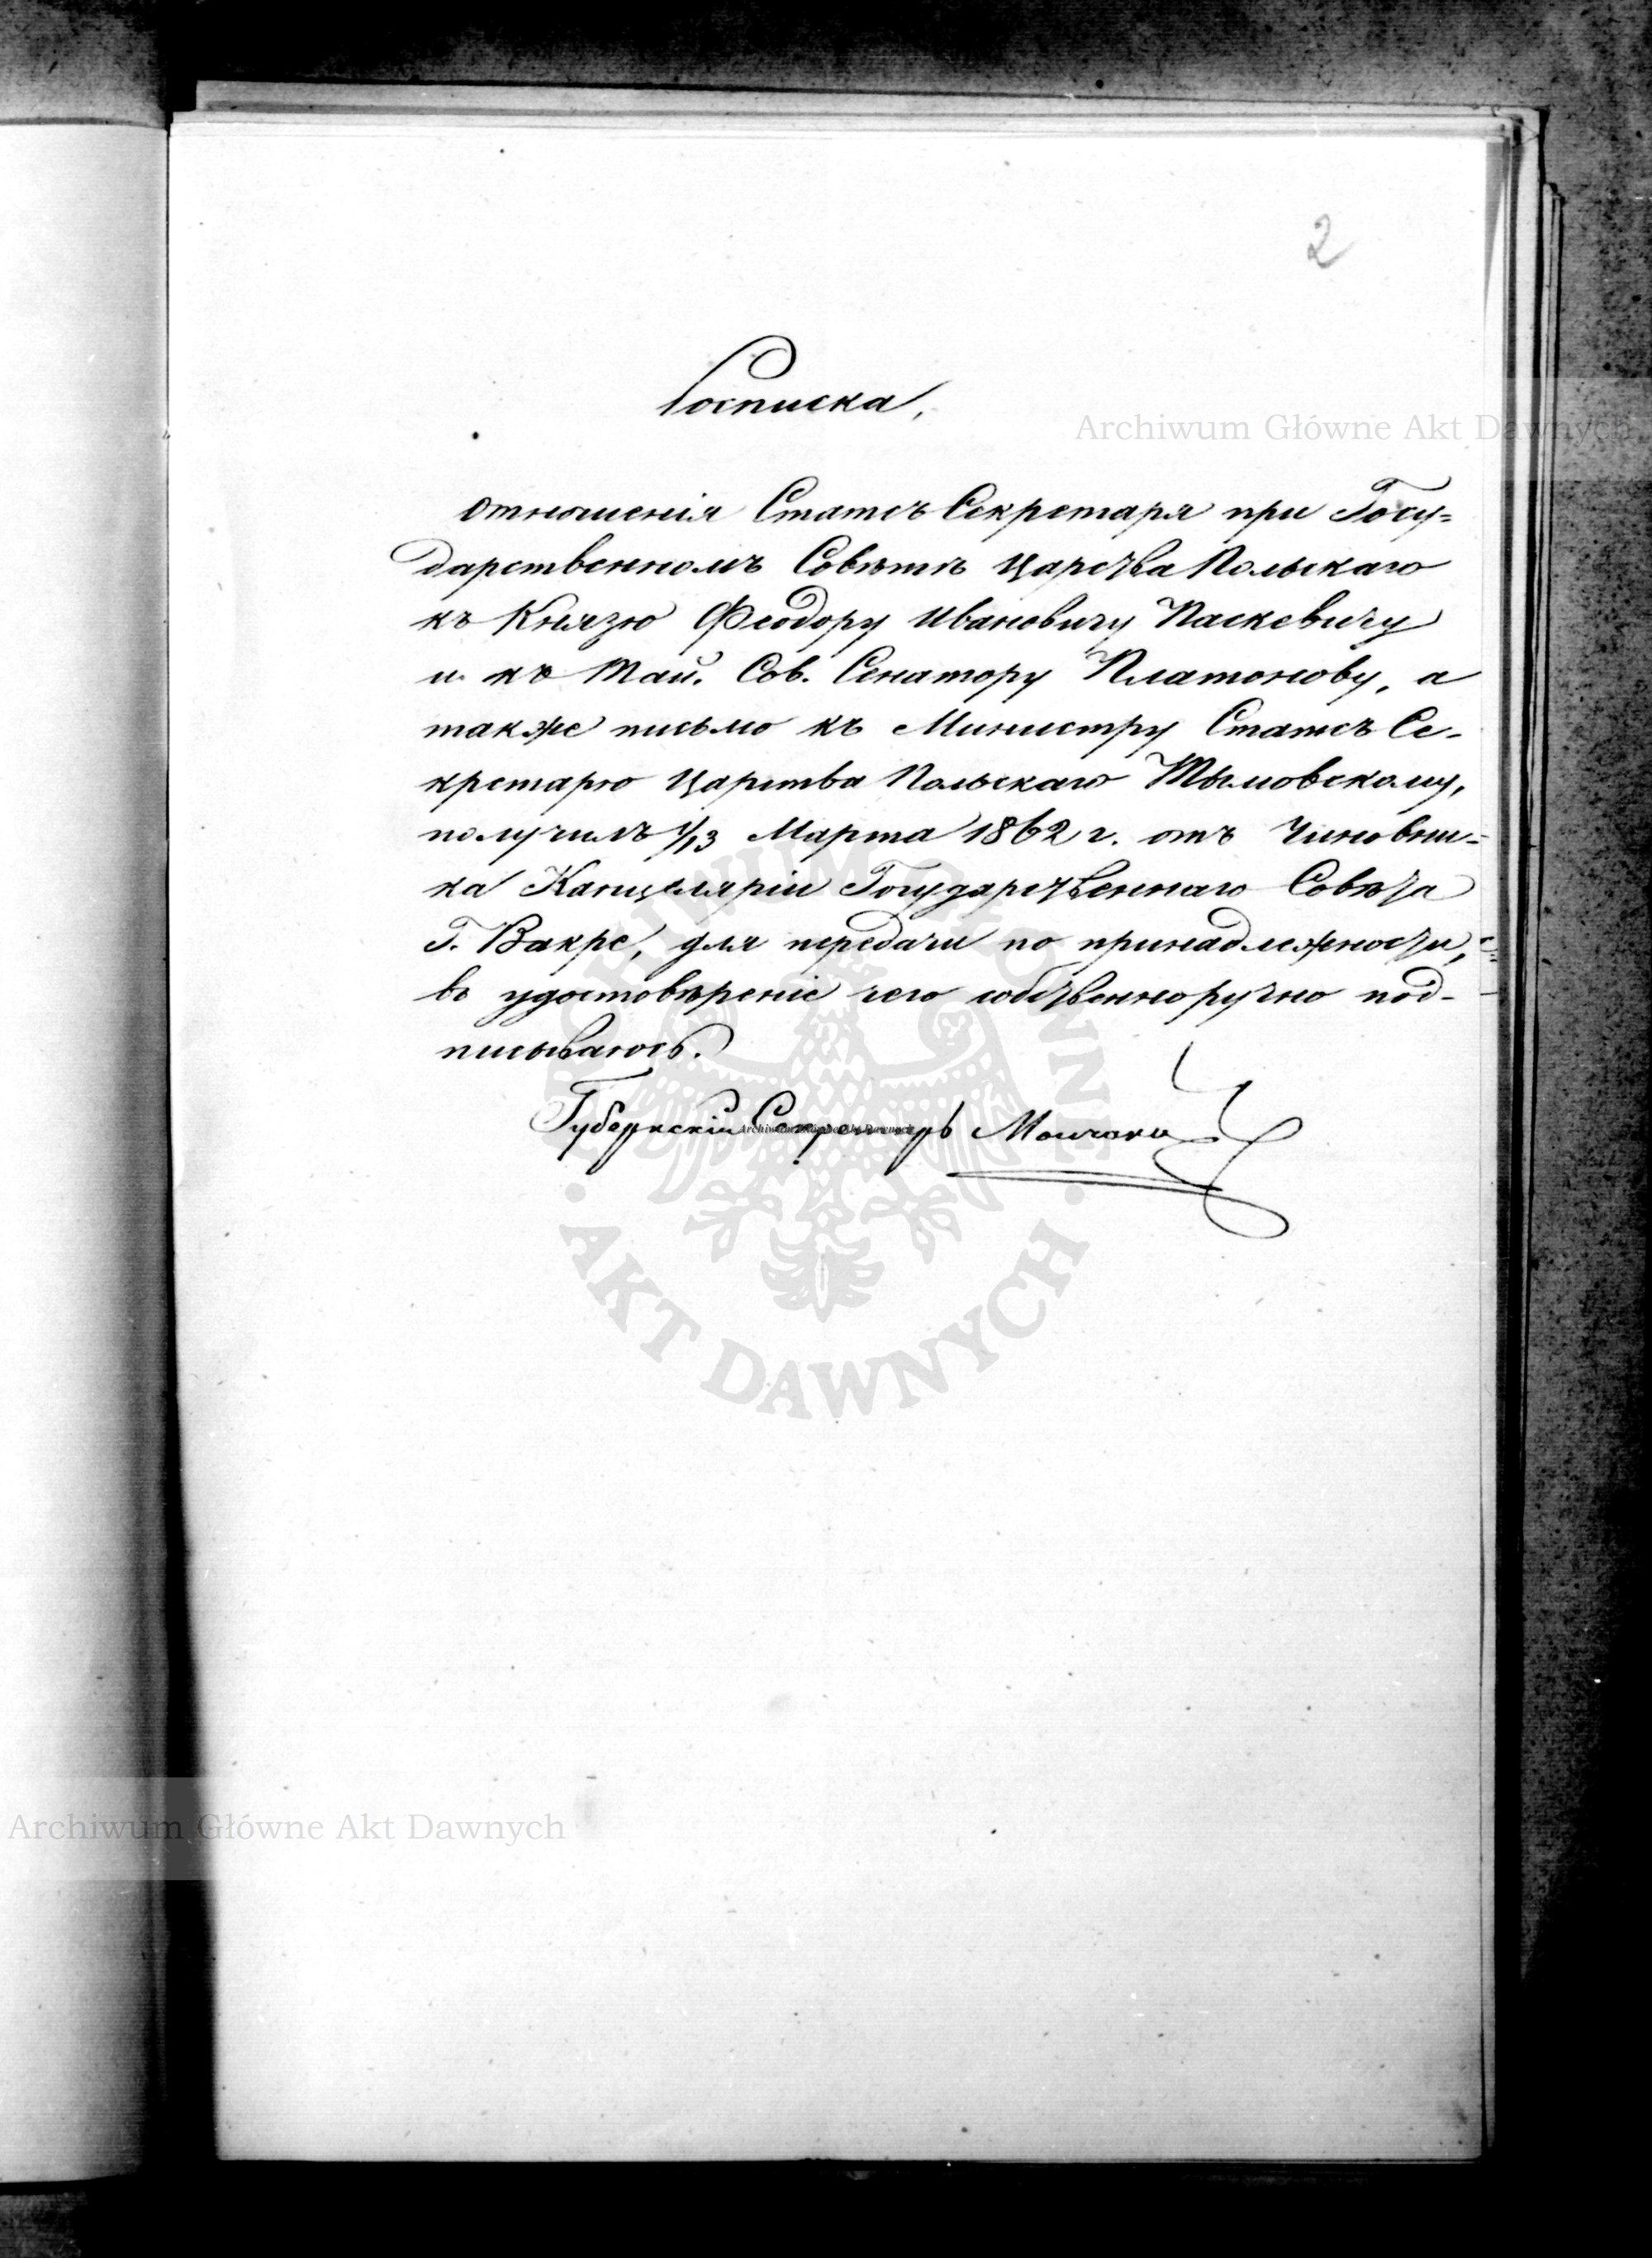 2
Росписка,
Archiwum Główne Akt Dawnych
Отношенія Статсъ Секретаря при Госу=
дарственномъ Совѣтѣ Царства Польскаго
къ Князю Феодору Ивановичу Паскевичу
и къ Тай. Сов. Сенатору Платонову, а
также письмо къ Министру Статсъ Се-
кретарю Царства Польскаго Тымовскому,
получилъ 1/13 Марта 1862 г. отъ Чиновни-
ка Канцеляріи Государственнаго Совѣта
Г. Вакре, для передачи по принадлежности,
въ удостовѣреніе чего собственноручно под-
писываюсь.
Губернскій Секретарь
Archiwum Główne Akt Dawnych
ARCHIWUM GŁÓWNE
· AKT DAWNYCH ·
Archiwum Główne Akt Dawnych